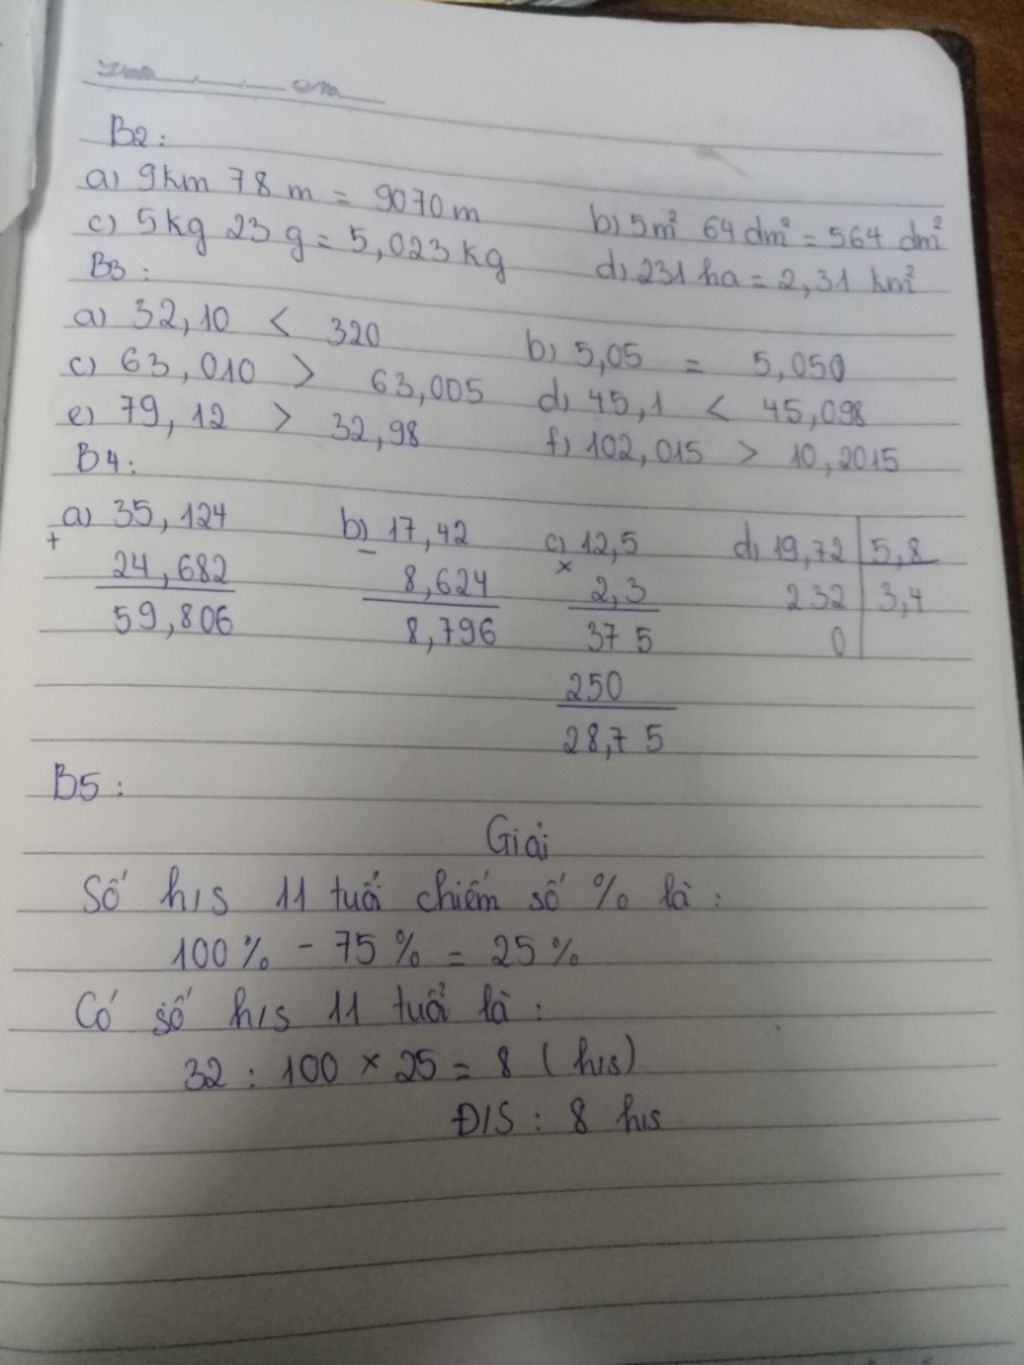 B2:
a) 9km 78 m = 9070 m b) 5m² 64 dm² = 564 dm²
c) 5kg 23 g = 5,023 kg d) 231 ha = 2,31 km²
B3:
a) 32,10 < 320 b) 5,05 = 5,050
c) 63,010 > 63,005 d) 45,1 < 45,098
e) 79,12 > 32,98 f) 102,015 > 10,2015
B4:
a) 35,124 b) 17,42 c) 12,5 d) 19,72 5,8
+ - ×
24,682 8,624 2,3 232 3,4
59,806 8,796 37 5 0
250
28,7 5
B5:
Giải
Số h/s 11 tuổi chiếm số % là:
100% - 75% = 25%
Có số h/s 11 tuổi là:
32 : 100 × 25 = 8 (h/s)
Đ/S : 8 h/s